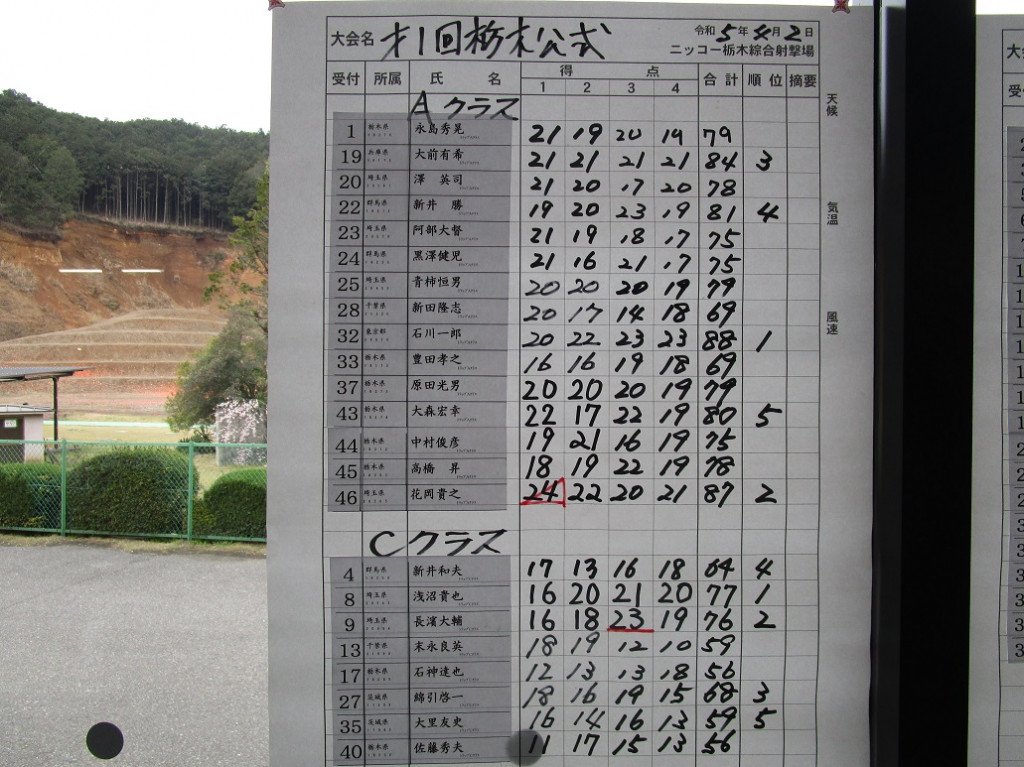 大会名 オ1回栃木公式 令和5年4月2日
ニッコー栃木綜合射撃場
受付 所属 氏名 得点 合計 順位 摘要
1 2 3 4
天候
Aクラス
1 栃木県 永島秀晃 21 19 20 19 79
19 兵庫県 大前有希 21 21 21 21 84 3
20 埼玉県 澤 英司 21 20 17 20 78
22 群馬県 新井 勝 19 20 23 19 81 4
気温
23 埼玉県 阿部大督 21 19 18 17 75
24 群馬県 黒澤健児 21 16 21 17 75
25 埼玉県 青柿恒男 20 20 20 19 79
28 千葉県 新田隆志 20 17 14 18 69
風速
32 東京都 石川一郎 20 22 23 23 88 1
33 栃木県 豊田孝之 16 16 19 18 69
37 栃木県 原田光男 20 20 20 19 79
43 栃木県 大森宏幸 22 17 22 19 80 5
44 栃木県 中村俊彦 19 21 16 19 75
45 栃木県 高橋 昇 18 19 22 19 78
46 埼玉県 花岡貴之 24 22 20 21 87 2
Cクラス
4 群馬県 新井和夫 17 13 16 18 64 4
8 埼玉県 浅沼貴也 16 20 21 20 77 1
9 埼玉県 長濱大輔 16 18 23 19 76 2
13 千葉県 末永良英 18 19 12 10 59
17 栃木県 石神達也 12 13 13 18 56
27 茨城県 綿引啓一 18 16 19 15 68 3
35 茨城県 大里友史 16 14 16 13 59 5
40 栃木県 佐藤秀夫 11 17 15 13 56